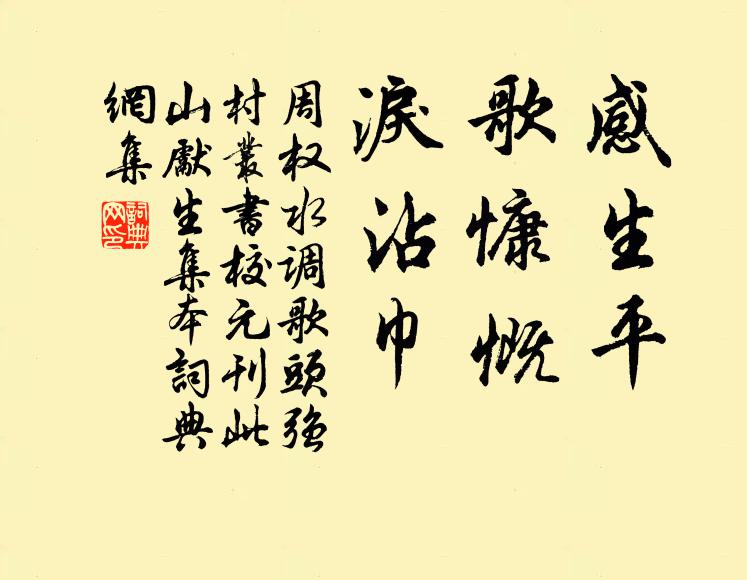 感生平
歌慷慨
淚沾巾
周权水调歌頭強
村叢書校元刊此
山獻生集本詞典
網集
詞典網印